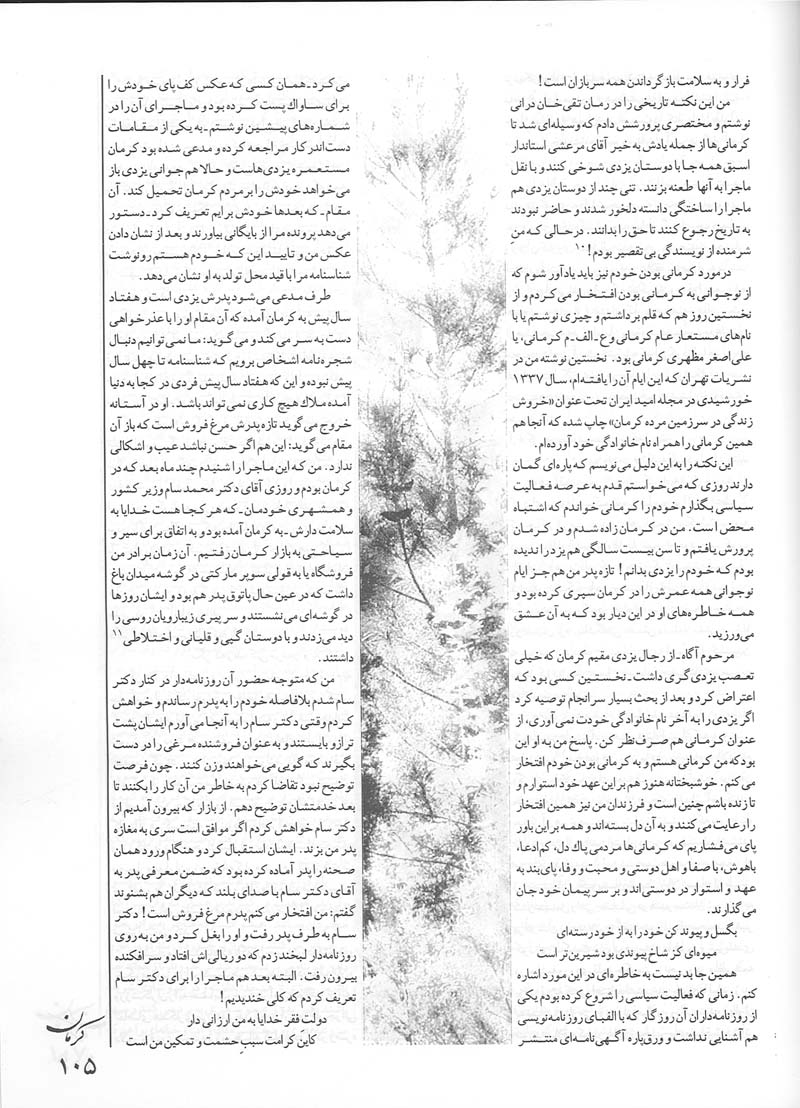 فرار و به سلامت بازگرداندن همه سربازان است!
من این نکته تاریخی را در رمان تقی‌خان درانی
نوشتم و مختصری پرورشش دادم که وسیله‌ای شد تا
کرمانی‌ها از جمله یادش به خیر آقای مرعشی استاندار
اسبق همه جا با دوستان یزدی شوخی کنند و با نقل
ماجرا به آنها طعنه بزنند. تنی چند از دوستان یزدی هم
ماجرا را ساختگی دانسته دلخور شدند و حاضر نبودند
به تاریخ رجوع کنند تا حق را بدانند. در حالی که من
شرمنده از نویسندگی بی تقصیر بودم!۱۰
در مورد کرمانی بودن خودم نیز باید یادآور شوم که
از نوجوانی به کرمانی بودن افتخار می‌کردم و از
نخستین روز هم که قلم برداشتم و چیزی نوشتم یا با
نام‌های مستعار عام کرمانی و ع-الف-م کرمانی، یا
علی‌اصغر مظهری کرمانی بود. نخستین نوشته من در
نشریات تهران که این ایام آن را یافته‌ام، سال ۱۳۳۷
خورشیدی در مجله امید ایران تحت عنوان «خروش
زندگی در سرزمین مرده کرمان» چاپ شده که آنجا هم
همین کرمانی را همراه نام خانوادگی خود آورده‌ام.
این نکته را به این دلیل می‌نویسم که پاره‌ای گمان
دارند روزی که می‌خواستم قدم به عرصه فعالیت
سیاسی بگذارم خودم را کرمانی خواندم که اشتباه
محض است. من در کرمان زاده شدم و در کرمان
پرورش یافتم و تا سن بیست سالگی هم یزد را ندیده
بودم که خودم را یزدی بدانم! تازه پدر من هم جز ایام
نوجوانی همه عمرش را در کرمان سپری کرده بود و
همه خاطره‌های او در این دیار بود که به آن عشق
می‌ورزید.
مرحوم آگاه-از رجال یزدی مقیم کرمان که خیلی
تعصب یزدی‌گری داشت-نخستین کسی بود که
اعتراض کرد و بعد از بحث بسیار سرانجام توصیه کرد
اگر یزدی را به آخر نام خانوادگی خودت نمی‌آوری، از
عنوان کرمانی هم صرف‌نظر کن. پاسخ من به او این
بود که من کرمانی هستم و به کرمانی بودن خودم افتخار
می‌کنم. خوشبختانه هنوز هم بر این عهد خود استوارم و
تا زنده باشم چنین است و فرزندان من نیز همین افتخار
را رعایت می‌کنند و به آن دل بسته‌اند و همه بر این باور
پای می‌فشاریم که کرمانی‌ها مردمی پاک دل، کم‌ادعا،
باهوش، با صفا و اهل دوستی و محبت و وفا، پای‌بند به
عهد و استوار در دوستی‌اند و بر سر پیمان خود جان
می‌گذارند.
بگسل و پیوند کن خود را به از خود رسته‌ای
میوه‌ای کز شاخ پیوندی بود شیرین‌تر است
همین جا بد نیست به خاطره‌ای در این مورد اشاره
کنم. زمانی که فعالیت سیاسی را شروع کرده بودم یکی
از روزنامه‌داران آن روزگار که با الفبای روزنامه‌نویسی
هم آشنایی نداشت و ورق‌پاره آگهی‌نامه‌ای منتشر
می‌کرد-همان کسی که عکس کف پای خودش را
برای ساواک پست کرده بود و ماجرای آن را در
شماره‌های پیشین نوشتم-به یکی از مقامات
دست‌اندرکار مراجعه کرده و مدعی شده بود کرمان
مستعمره یزدی‌هاست و حالا هم جوانی یزدی باز
می‌خواهد خودش را بر مردم کرمان تحمیل کند. آن
مقام-که بعدها خودش برایم تعریف کرد-دستور
می‌دهد پرونده مرا از بایگانی بیاورند و بعد از نشان دادن
عکس من و تایید این که خودم هستم رونوشت
شناسنامه مرا با قید محل تولد به او نشان می‌دهد.
طرف مدعی می‌شود پدرش یزدی است و هفتاد
سال پیش به کرمان آمده که آن مقام او را با عذرخواهی
دست به سر می‌کند و می‌گوید: ما نمی‌توانیم دنبال
شجره‌نامه اشخاص برویم که شناسنامه تا چهل سال
پیش نبوده و این که هفتاد سال پیش فردی در کجا به دنیا
آمده ملاک هیچ کاری نمی‌تواند باشد. او در آستانه
خروج می‌گوید تازه پدرش مرغ فروش است که باز آن
مقام می‌گوید: این هم اگر حسن نباشد عیب و اشکالی
ندارد. من که این ماجرا را شنیدم چند ماه بعد که در
کرمان بودم و روزی آقای دکتر محمد سام وزیر کشور
و همشهری خودمان-که هر کجا هست خدایا به
سلامت دارش-به کرمان آمده بود و به اتفاق برای سیر و
سیاحتی به بازار کرمان رفتیم. آن زمان برادر من
فروشگاه یا به قولی سوپر مارکتی در گوشه میدان باغ
داشت که در عین حال پاتوق پدر هم بود و ایشان روزها
در گوشه‌ای می‌نشستند و سر پیری زیبارویان روسی را
دید می‌زدند و با دوستان گپی و قلیانی و اختلاطی۱۱
داشتند.
من که متوجه حضور آن روزنامه‌دار در کنار دکتر
سام شدم بلافاصله خودم را به پدرم رساندم و خواهش
کردم وقتی دکتر سام را به آنجا می‌آورم ایشان پشت
ترازو بایستند و به عنوان فروشنده مرغی را در دست
بگیرند که گویی می‌خواهند وزن کنند. چون فرصت
توضیح نبود تقاضا کردم به خاطر من آن کار را بکنند تا
بعد خدمتشان توضیح دهم. از بازار که بیرون آمدیم از
دکتر سام خواهش کردم اگر موافق است سری به مغازه
پدر من بزند. ایشان استقبال کرد و هنگام ورود همان
صحنه را پدر آماده کرده بود که ضمن معرفی پدر به
آقای دکتر سام با صدای بلند که دیگران هم بشنوند
گفتم: من افتخار می‌کنم پدرم مرغ فروش است! دکتر
سام به طرف پدر رفت و او را بغل کرد و من به روی
روزنامه‌دار لبخند زدم که دو ریالی‌اش افتاد و سرافکنده
بیرون رفت. البته بعد هم ماجرا را برای دکتر سام
تعریف کردم که کلی خندیدیم!
دولتِ فقر خدایا به من ارزانی دار
کاین کرامت سببِ حشمت و تمکین من است
کرمان
۱۰۵